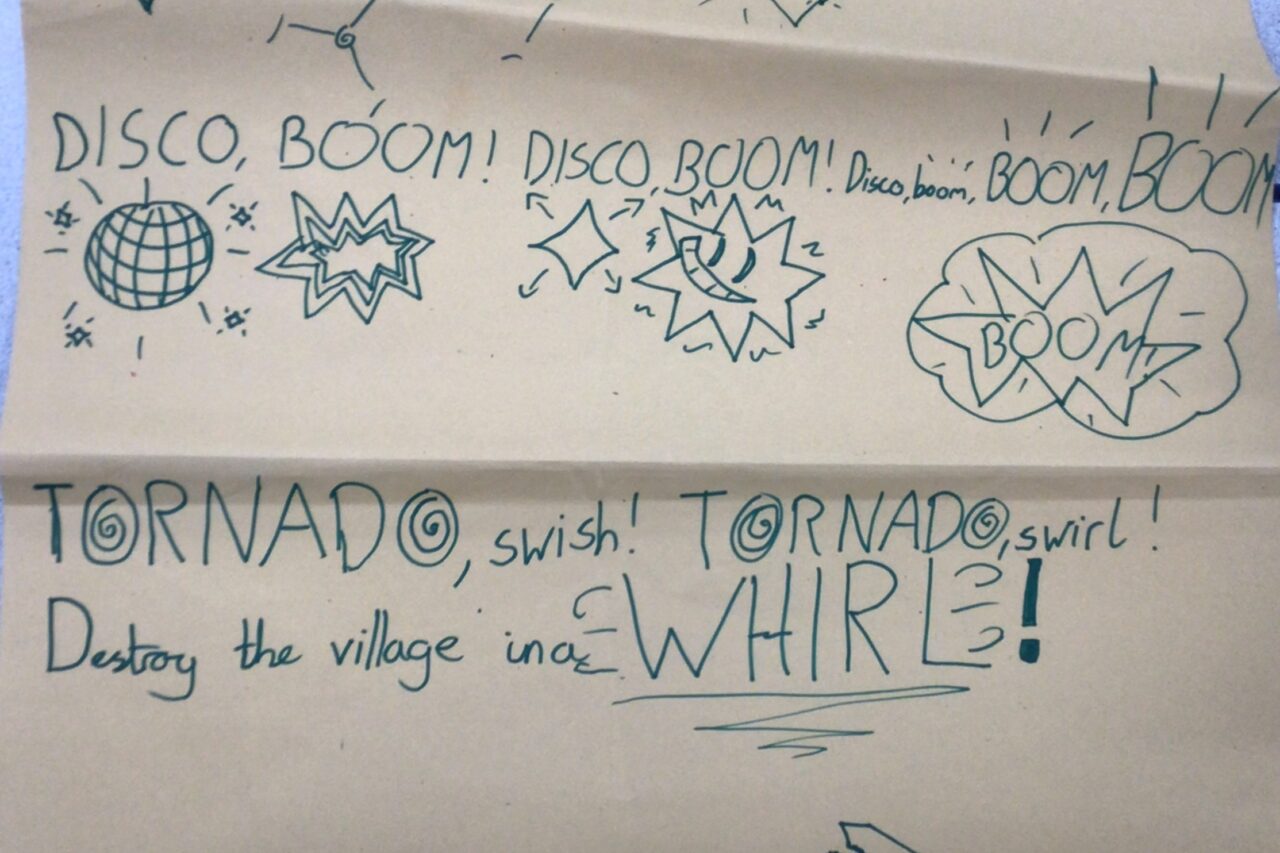 DISCO, BOOM! DISCO, BOOM! Disco, boom, BOOM, BOOM
BOOM!
TORNADO, swish! TORNADO, swirl!
Destroy the village in a WHIRL!